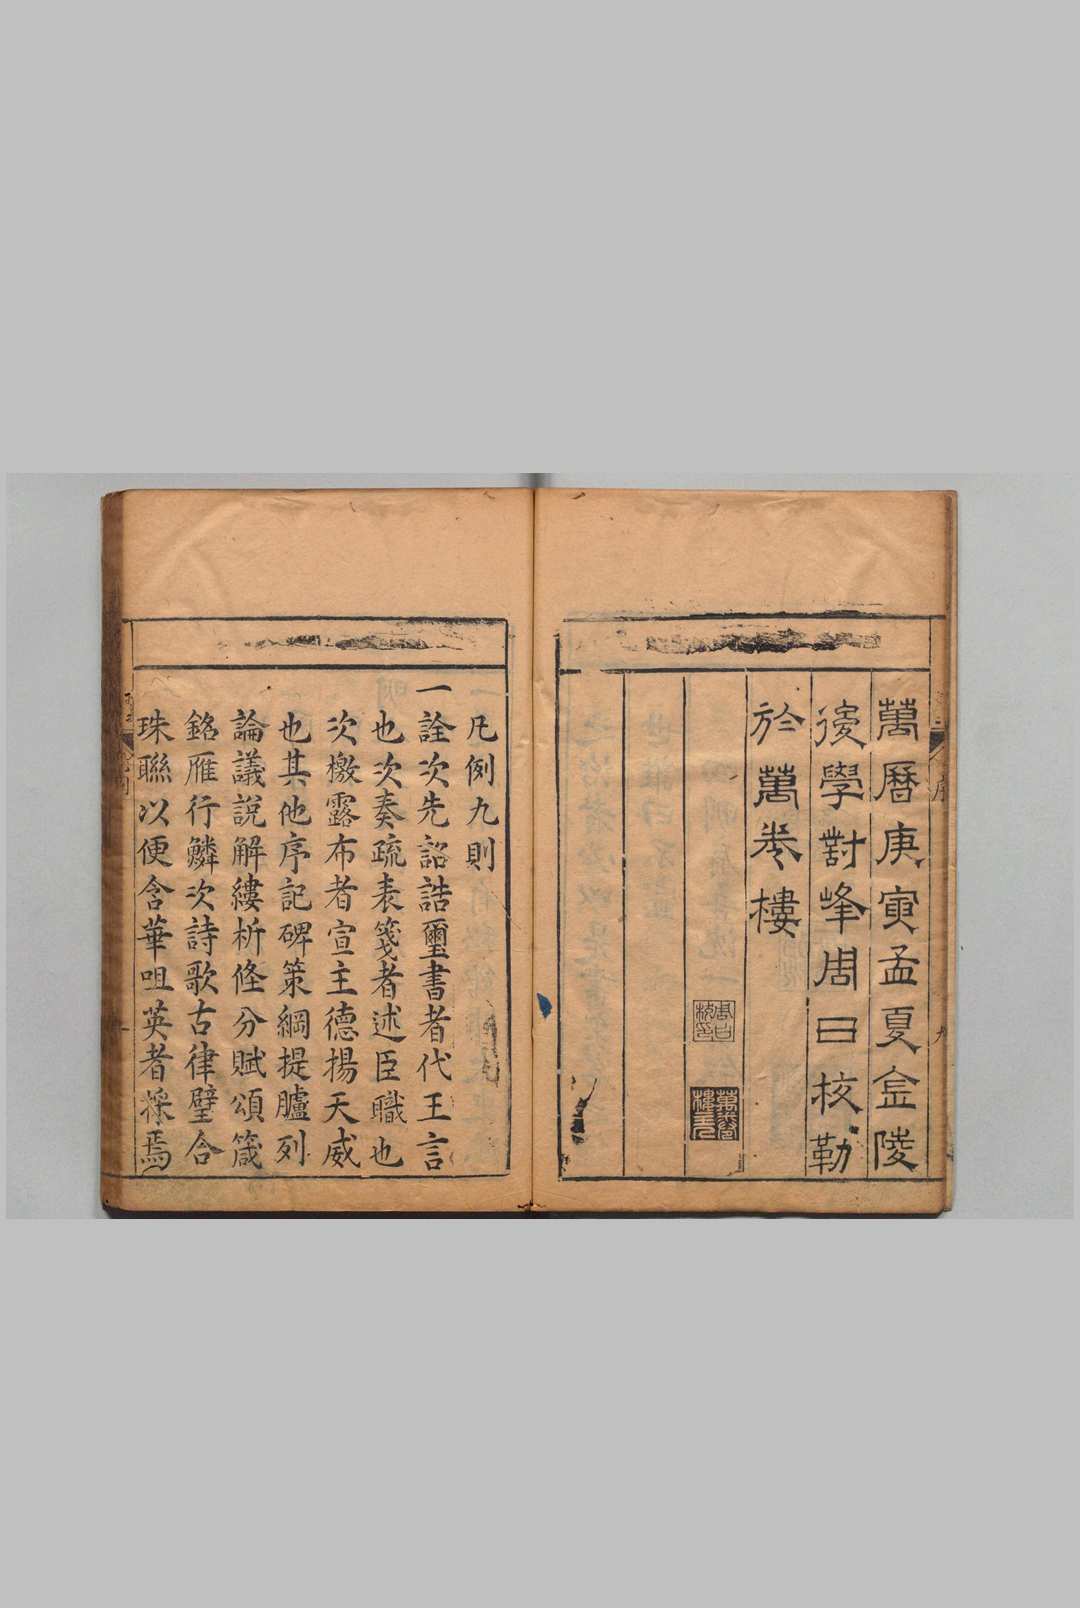 萬曆庚寅孟夏金陵
後學對峰周曰校勒
於萬卷樓
凡例九則
一詮次先詔誥璽書者代王言
也次奏疏表箋者述臣職也
次檄露布者宣主德揚天威
也其他序記碑策綱提臚列
論議說解縷析條分賦頌箴
銘雁行鱗次詩歌古律璧合
珠聯以便含華咀英者採焉